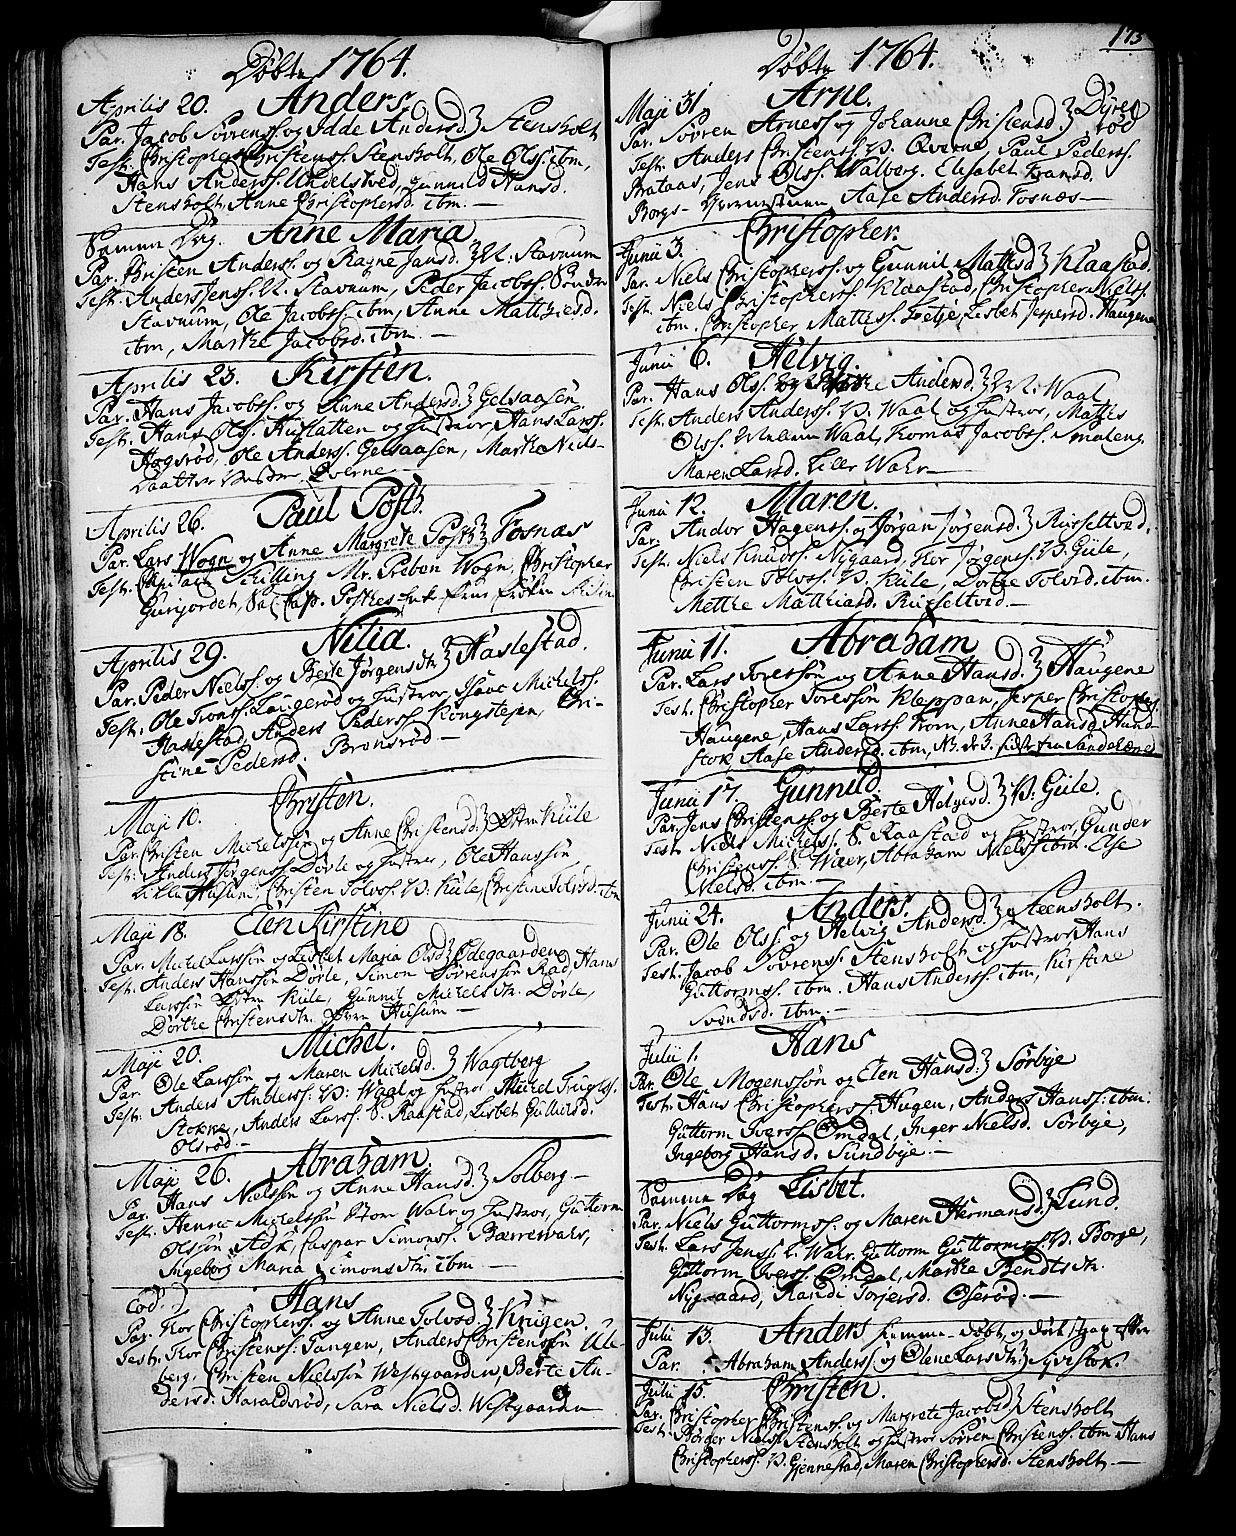 Døbte 1764.
Aprilis 20. Anders.
Par. Jacob Sørrenss. og Idde Andersd. Stensholt
Test. Christopher Christenss. Stensholt, Ole Olss. ibm,
Hans Anderss. Undelstved, Gunnild Hansd.
Stensholt, Anne Christophersd. ibm. —
Samme Dag. Anne Maria
Par. Christen Anderss. og Ragne Jansd. Stavnum
Test. Anders Jenss. Stavnum, Peder Jacobss. Søndre
Stavnum, Ole Jacobss. ibm, Anne Matthiesd.
ibm, Marthe Jacobsd. ibm. —
Aprilis 23. Kirsten.
Par. Hans Jacobss. og Anne Andersd. Gelsaasen
Test. Hans Olss. Huslatten og Hustroe, Hans Larss.
Hogsrød, Ole Anderss. Gelsaasen, Marthe Niels-
Daatter Qverne
Aprilis 26. Paul Posth.
Par. Lars Wogn og Anne Margrete Posth Fosnæs
Test. Capitain Schilling Mr. Preben Wogn, Christopher
Gurijordet,
Aprilis 29. Nilia.
Par. Peder Nielss. og Berte Jørgensdtr. Haslestad.
Test. Ole Tronss. Laugerød og Hustroe, Isaac Michelss.
Haslestad, Anders Pederss. Kongstejen, Chri-
stine Pedersd. Brønsrød —
Maji 10. Christen.
Par. Christen Michelssøn og Anne Christensd. Østre Hiile
Test. Anders Jørgenss. Dørle og Hustroe, Ole Hanssøn
Lille Husum, Christen Tolvss. V: Hiile, Christine Tolvsd. ibm
Maji 18. Elen Kirstine
Par. Michel Larssøn og Lisbet Maria Olsd. Ødegaarden
Test. Anders Hanssøn Dørle, Simon Sørrenssøn Rød, Hans
Larssøn Østre Hiile, Gunnil Michelsdtr. Dørle,
Dorthe Christensdtr. Øvre Husum —
Maji 20. Michel.
Par. Ole Larssøn og Maren Michelsd. Wagtberg
Test. Anders Anderss. V: Waal og Hustroe Michel Trugelss.
Stokke, Anders Larss. S. Raastad, Lisbet Gulliksd.
Olsrød. —
Maji 26. Abraham
Par. Hans Nielssøn og Anne Hansd. Solberg —
Test. Henric Michelssøn Store Walr og Hustroe, Guttorm
Olssøn Ask, Caspar Simonss. Bærrevals,
Ingeborg Maria Simonsdtr. ibm —
Eod. D. Hans
Par. Thor Christopherss. og Anne Tolvsd. Krugen.
Test. Thor Christenss. Tangen, Anders Christenssøn Ule-
berg. Christen Nielssøn Westgaarden, Berte An-
dersd. Haraldsrød, Sara Nielsd. Westgaarden
173
Døbte 1764.
Maji 31. Arne.
Par. Sørren Arness. og Johanne Christensd. Dyres
rød
Test. Anders Christenss. V. Qverne, Paul Pederss.
Brataas, Jens Olss. Walberg. Elisabet Framsd.
Borge, Aase Andersd. Fosnæs —
Junii 3. Christopher.
Par. Niels Christopherss. og Gunnil Mattisd. Klaastad.
Test. Niels Christopherss. Klaastad, Christopher Nielss.
ibm. Christopher Mattiss. Freste, Lisbet Jespersd. Haugene
Junii 6. Helvig.
Par. Hans Olss. og Andersd. Waal
Test. Anders Anderss. V. Waal og Hustroe, Mattis
Olss. Waal, Thomas Jacobss. Smaleng
Maren Larsd. Lille Walr —
Junii 12. Maren.
Par. Andor Hagenss. og Jørgan Jørgensd. Riseltved.
Test. Niels Knudss. Nygaard, Thor Jørgenss. V. Hiile,
Christen Tolvss. V. Hiile, Dorthe Tolvsd. ibm.
Mette Matthiasd. Riseltved. —
Junii 11. Abraham
Par. Lars Toressøn og Anne Hansd. Haugene
Test. Christopher Toressøn Kleppan, Jesper Christophers
Haugene, Hans Larss. From, Anne Hansd. Hund-
stok, Aase Andersd. ibm,
Junii 17. Gunnild.
Par. Jens Christenss. og Berte Helgesd. V. Hiile.
Test. Niels Michelss. S. Raastad og Hustroe, Gunder
Christenss. S. Walr, Abraham Nielss. ibm. Else
Nielsd. ibm. —
Junii 24. Anders.
Par. Ole Olss. og Helvig Andersd. Steensholt.
Test. Jacob Sørrenss. Stensholt og Hustroe Hans
Guttormss. ibm. Hans Anderss. ibm, Kirstine
Svendsd. ibm. —
Julii 1. Hans
Par. Ole Mogenssøn og Elen Hansd. Sørbye
Test. Hans Christopherss. Hugen, Anders Hanss. ibm.
Guttorm Iverss. Omdal, Inger Nielsd. Sørbye,
Ingeborg Hansd. Sundbye. —
Samme Dag Lisbet.
Par. Niels Guttormss. og Maren Hermansd. Lund.
Test. Lars Jenss. L. Walr. Guttorm Guttormss. V. Borge,
Guttorm Iverss. Omdal, Marthe Bendtsdtr.
Nygaard, Randi Torjersd. Oserød. —
Julii 13. Anders hjemme-døbt, og død strax efter
Par. Abraham Anderss. og Olene Larsdtr. Syvestok.
Julii 15. Christen.
Par. Christopher Christenss. og Margrete Jacobsd. Stensholt
Test. Børger Nielss. Stensholt og Hustroe Sørren Christenss. ibm Hans
Christopherss. V. Gjennestad, Maren Christophersd. Stensholt. —